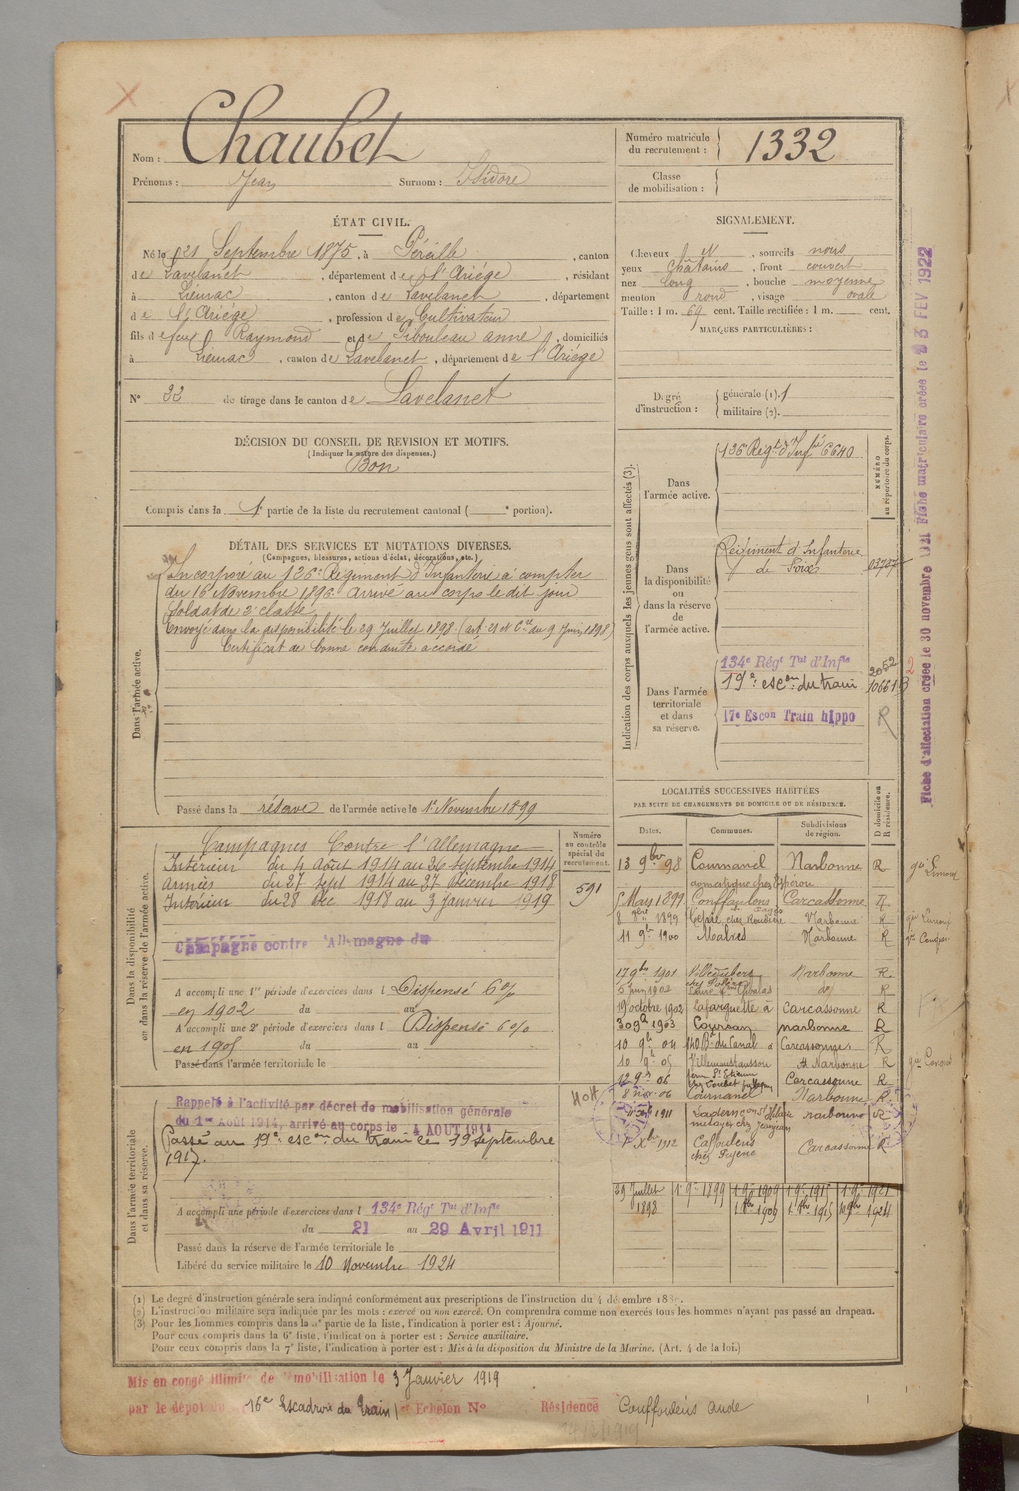 Nom : Chaubet
Prénoms : Jean Surnom : Isidore
Numéro matricule du recrutement : 1332
Classe de mobilisation :
ÉTAT CIVIL.
Né le 21 Septembre 1875, à Péreille, canton
de Lavelanet, département de l'Ariége, résidant
à Lieurac, canton de Lavelanet, département
de l'Ariége, profession de Cultivateur
fils de feu Raymond et de Gibouleau anne, domiciliés
à Lieurac, canton de Lavelanet, département de l'Ariége
N° 33 de tirage dans le canton de Lavelanet
SIGNALEMENT.
Cheveux , sourcils noirs
yeux châtains, front couvert
nez long, bouche moyenne
menton rond, visage ovale
Taille : 1 m. 69 cent. Taille rectifiée : 1 m. cent.
MARQUES PARTICULIÈRES :
Degré d'instruction : générale (1). 1
militaire (2).
DÉCISION DU CONSEIL DE REVISION ET MOTIFS.
(Indiquer la nature des dispenses.)
Bon
Compris dans la 1e partie de la liste du recrutement cantonal ( e portion).
DÉTAIL DES SERVICES ET MUTATIONS DIVERSES.
(Campagnes, blessures, actions d'éclat, décorations, etc.)
Dans l'armée active.
Incorporé au 126e Régiment d'Infanterie à compter
du 16 Novembre 1896. Arrivé au corps le dit jour
Soldat de 2e classe
Envoyé dans la disponibilité le 29 Juillet 1898 (art. 21 et Cre du 9 Juin 1898)
Certificat de bonne conduite accordé
Passé dans la réserve de l'armée active le 1er Novembre 1899
Indication des corps auxquels les jeunes gens sont affectés (3).
NUMÉRO au répertoire du corps.
Dans l'armée active.
126e Régt d'Infrie 6640
Dans la disponibilité ou dans la réserve de l'armée active.
Régiment d'Infanterie
de Foix
Dans l'armée territoriale et dans sa réserve.
134e Régt Tal d'Infie 2052
19e escon du train 10661
17e Escon Train hippo R
Fiche d'affectation créée le 30 novembre 1921 Fiche matriculaire créée le 23 FEV 1922
Dans la disponibilité ou dans la réserve de l'armée active.
Campagnes Contre l'Allemagne
Intérieur du 4 Août 1914 au 26 septembre 1914
Armées du 27 sept 1914 au 27 décembre 1918
Intérieur du 28 dec 1918 au 3 janvier 1919
Campagne contre l'Allemagne du
Numéro au contrôle spécial du recrutement.
591
A accompli une 1re période d'exercices dans l Dispensé 6 %
en 1902 du au
A accompli une 2e période d'exercices dans l Dispensé 6 %
en 1905 du au
Passé dans l'armée territoriale le
LOCALITÉS SUCCESSIVES HABITÉES
PAR SUITE DE CHANGEMENTS DE DOMICILE OU DE RÉSIDENCE.
Dates. Communes. Subdivisions de région. D domicile ou R résidence.
13 9bre 98 Cournanel Narbonne R
domestique chez Espérou
5 May 1899 Couffoulens Carcassonne R
1899 Narbonne R
11 9b 1900 Moabres Narbonne R
17 9bre 1901 Narbonne R
5 juin 1902 R
19 octobre 1902 Lafarguette à Carcassonne R
30 9b 1903 Coursan narbonne R
10 9b 04 140 Bd du Canal à Carcassonne R
10 9b 05 Villemoustaussou Narbonne R
12 9b 06 Carcassonne R
8 nov 06 Cournanel Narbonne R
1911 Ladern narbonne R
1er Xbre 1912 Caffoulens Carcassonne R
29 Juillet 1898 1er 9bre 1899 1er 9bre 1909 1er 9bre 1915 1er 9bre 1921
1er 8bre 1909 1er 8bre 1915 10 9bre 1924
Dans l'armée territoriale et dans sa réserve.
Rappelé à l'activité par décret de mobilisation générale
du 1er Août 1914, arrivé au corps le 4 AOUT 1914
Passé au 19e escon du train le 19 septembre
1917.
A accompli une période d'exercices dans l 134e Régt Tal d'Infie
du 21 au 29 Avril 1911
Passé dans la réserve de l'armée territoriale le
Libéré du service militaire le 10 Novembre 1924
(1) Le degré d'instruction générale sera indiqué conformément aux prescriptions de l'instruction du 4 décembre 188 .
(2) L'instruction militaire sera indiquée par les mots : exercé ou non exercé. On comprendra comme non exercés tous les hommes n'ayant pas passé au drapeau.
(3) Pour les hommes compris dans la 5e partie de la liste, l'indication à porter est : Ajourné.
Pour ceux compris dans la 6e liste, l'indication à porter est : Service auxiliaire.
Pour ceux compris dans la 7e liste, l'indication à porter est : Mis à la disposition du Ministre de la Marine. (Art. 4 de la loi.)
Mis en congé illimité de démobilisation le 3 Janvier 1919
par le dépôt du 16e Escadron du Train 1er Echelon N° Résidence Couffoulens Aude